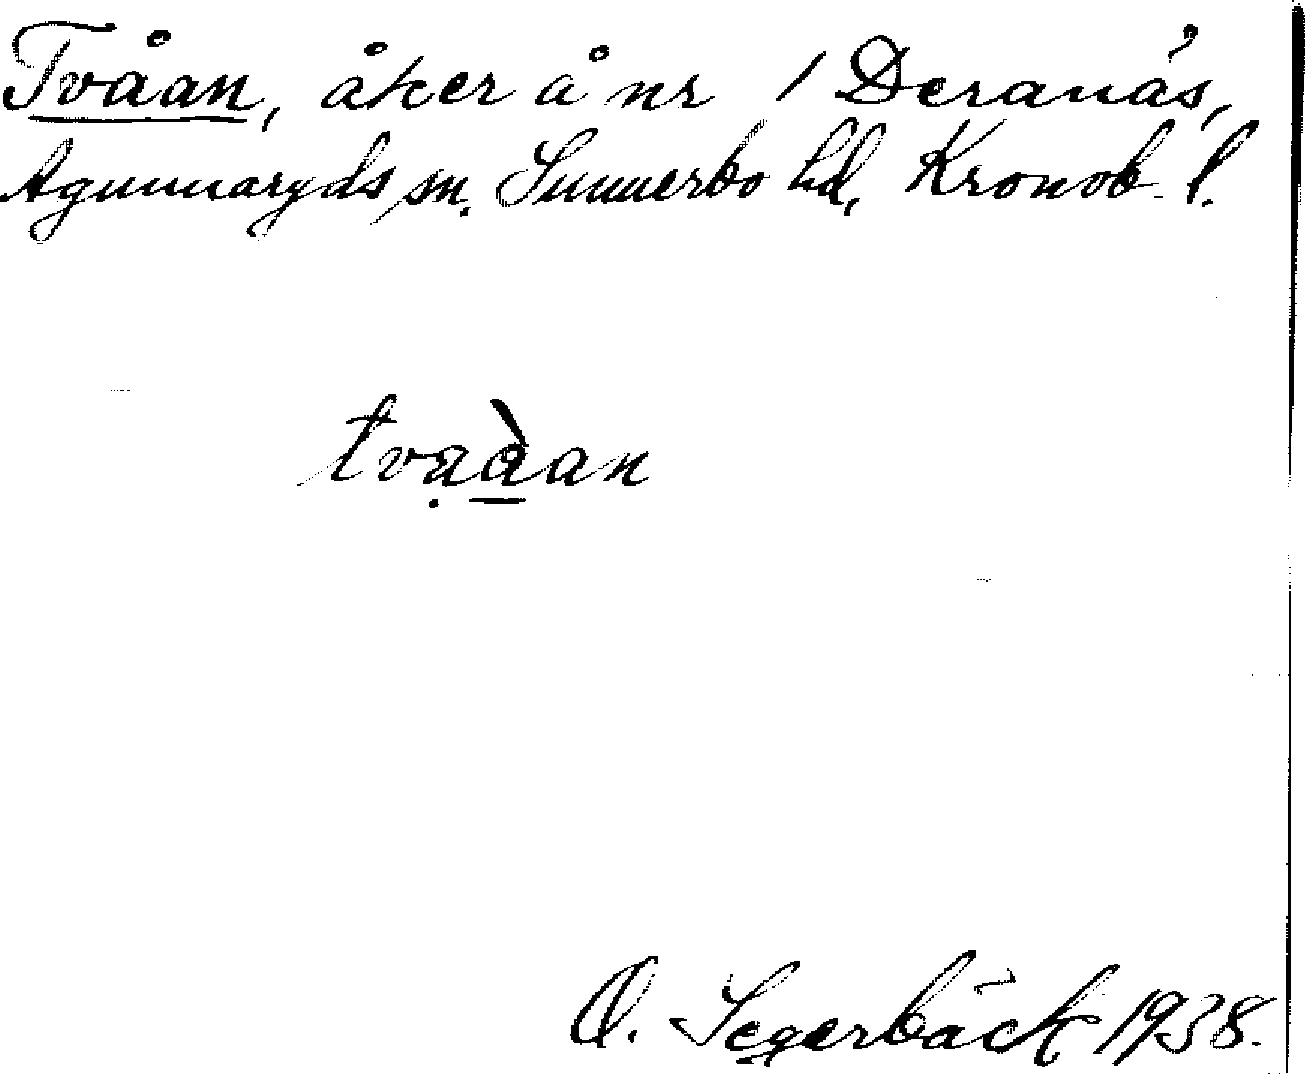 Tvåan, åker å nr 1 Deranäs,
Agunnaryds sn. Sunnerbo hd, Kronob. l.
tvạàan
O. Segerbäck 1938.